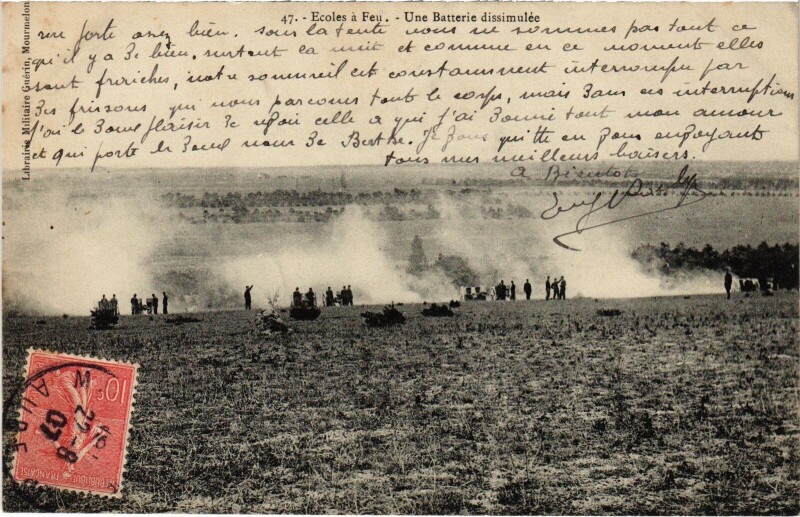 47. - Ecoles à Feu. - Une Batterie dissimulée
porte assez bien. sous la tente nous ne sommes pas tout ce
qu'il y a de bien, surtout la nuit et comme en ce moment elles
sont fraiches, notre sommeil est constamment interrompu par
des frissons qui nous parcours tout le corps, mais dans ces interruptions
j'ai le doux plaisir de revoir celle a qui j'ai donné tout mon amour
et qui porte le doux nom de Berthe. Je vous quitte en vous envoyant
tous mes meilleurs baisers.
a Bientot
Librairie Militaire Guérin, Mourmelon
10c
REPUBLIQUE FRANÇAISE
22-8
07